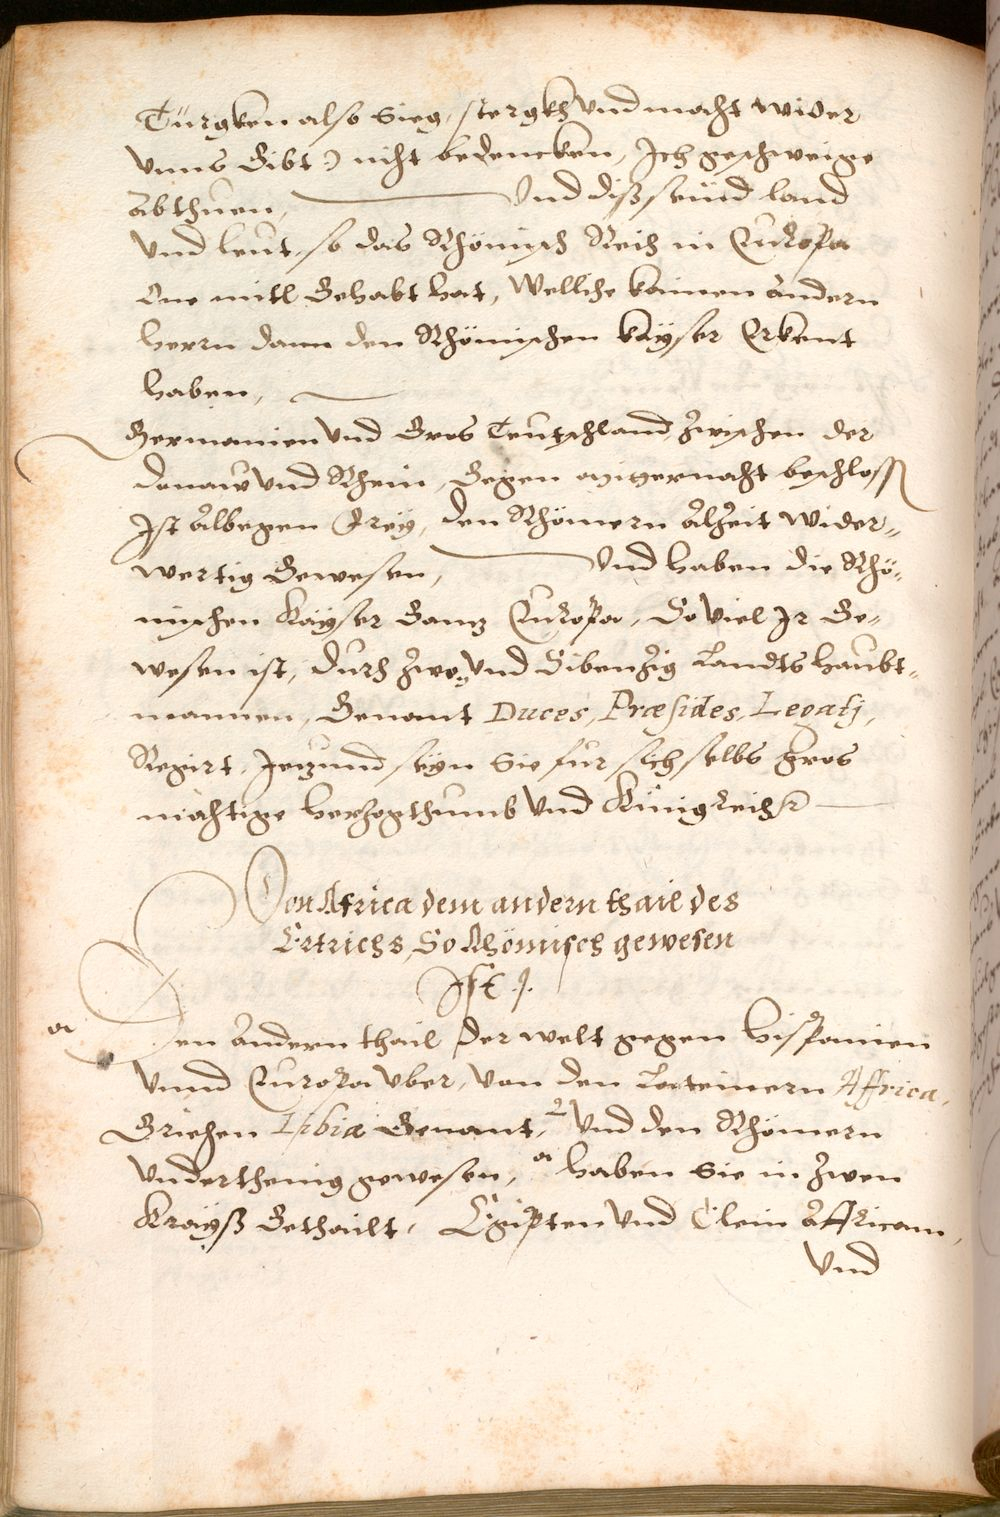 Türgken also Sieg, stergkh Vnd macht wider
Vnns Gibt) nicht bedencken, Ich geschweige
Abthuen, Vnd diß seind land
Vnd leut, so das Rhömisch Reich in Europa
One mitl Gehabt hat, Welliche kainen andern
herrn dann den Rhömischen kayser Erkent
haben,
Germanien Vnd Gros Teutschland, zwischen der
Donaw Vnd Rhein, Gegen mitternacht beschloss
Ist Albegen Frey, den Rhömern Alzeit Wider-
wertig Gewesen, Vnd haben die Rhö-
mischen Kayser Gantz Europa, So Viel Ir Ge-
wesen ist, durch zwey Vnd Sibenzig Landts haubt-
mannen, Genant Duces, Præsides, Legatj,
Regirt, Jetzund seyn Sie fur sich selbs gros
mächtige herzogthumb Vnd Künigreich
Von Africa dem andern thail des
Ertrichs, So Rhömisch gewesen
Ist .
a
Den Andern thail der welt gegen Hispanien
Vnnd Europa vber, von den Lateinern Affrica,
Griechen Libia Genant, 2 Vnd den Rhömern
Vnderthenig gewesen, a haben Sie in zwen
Krayß Gethailt, Egipten Vnd Clein Affricam,
Vnd